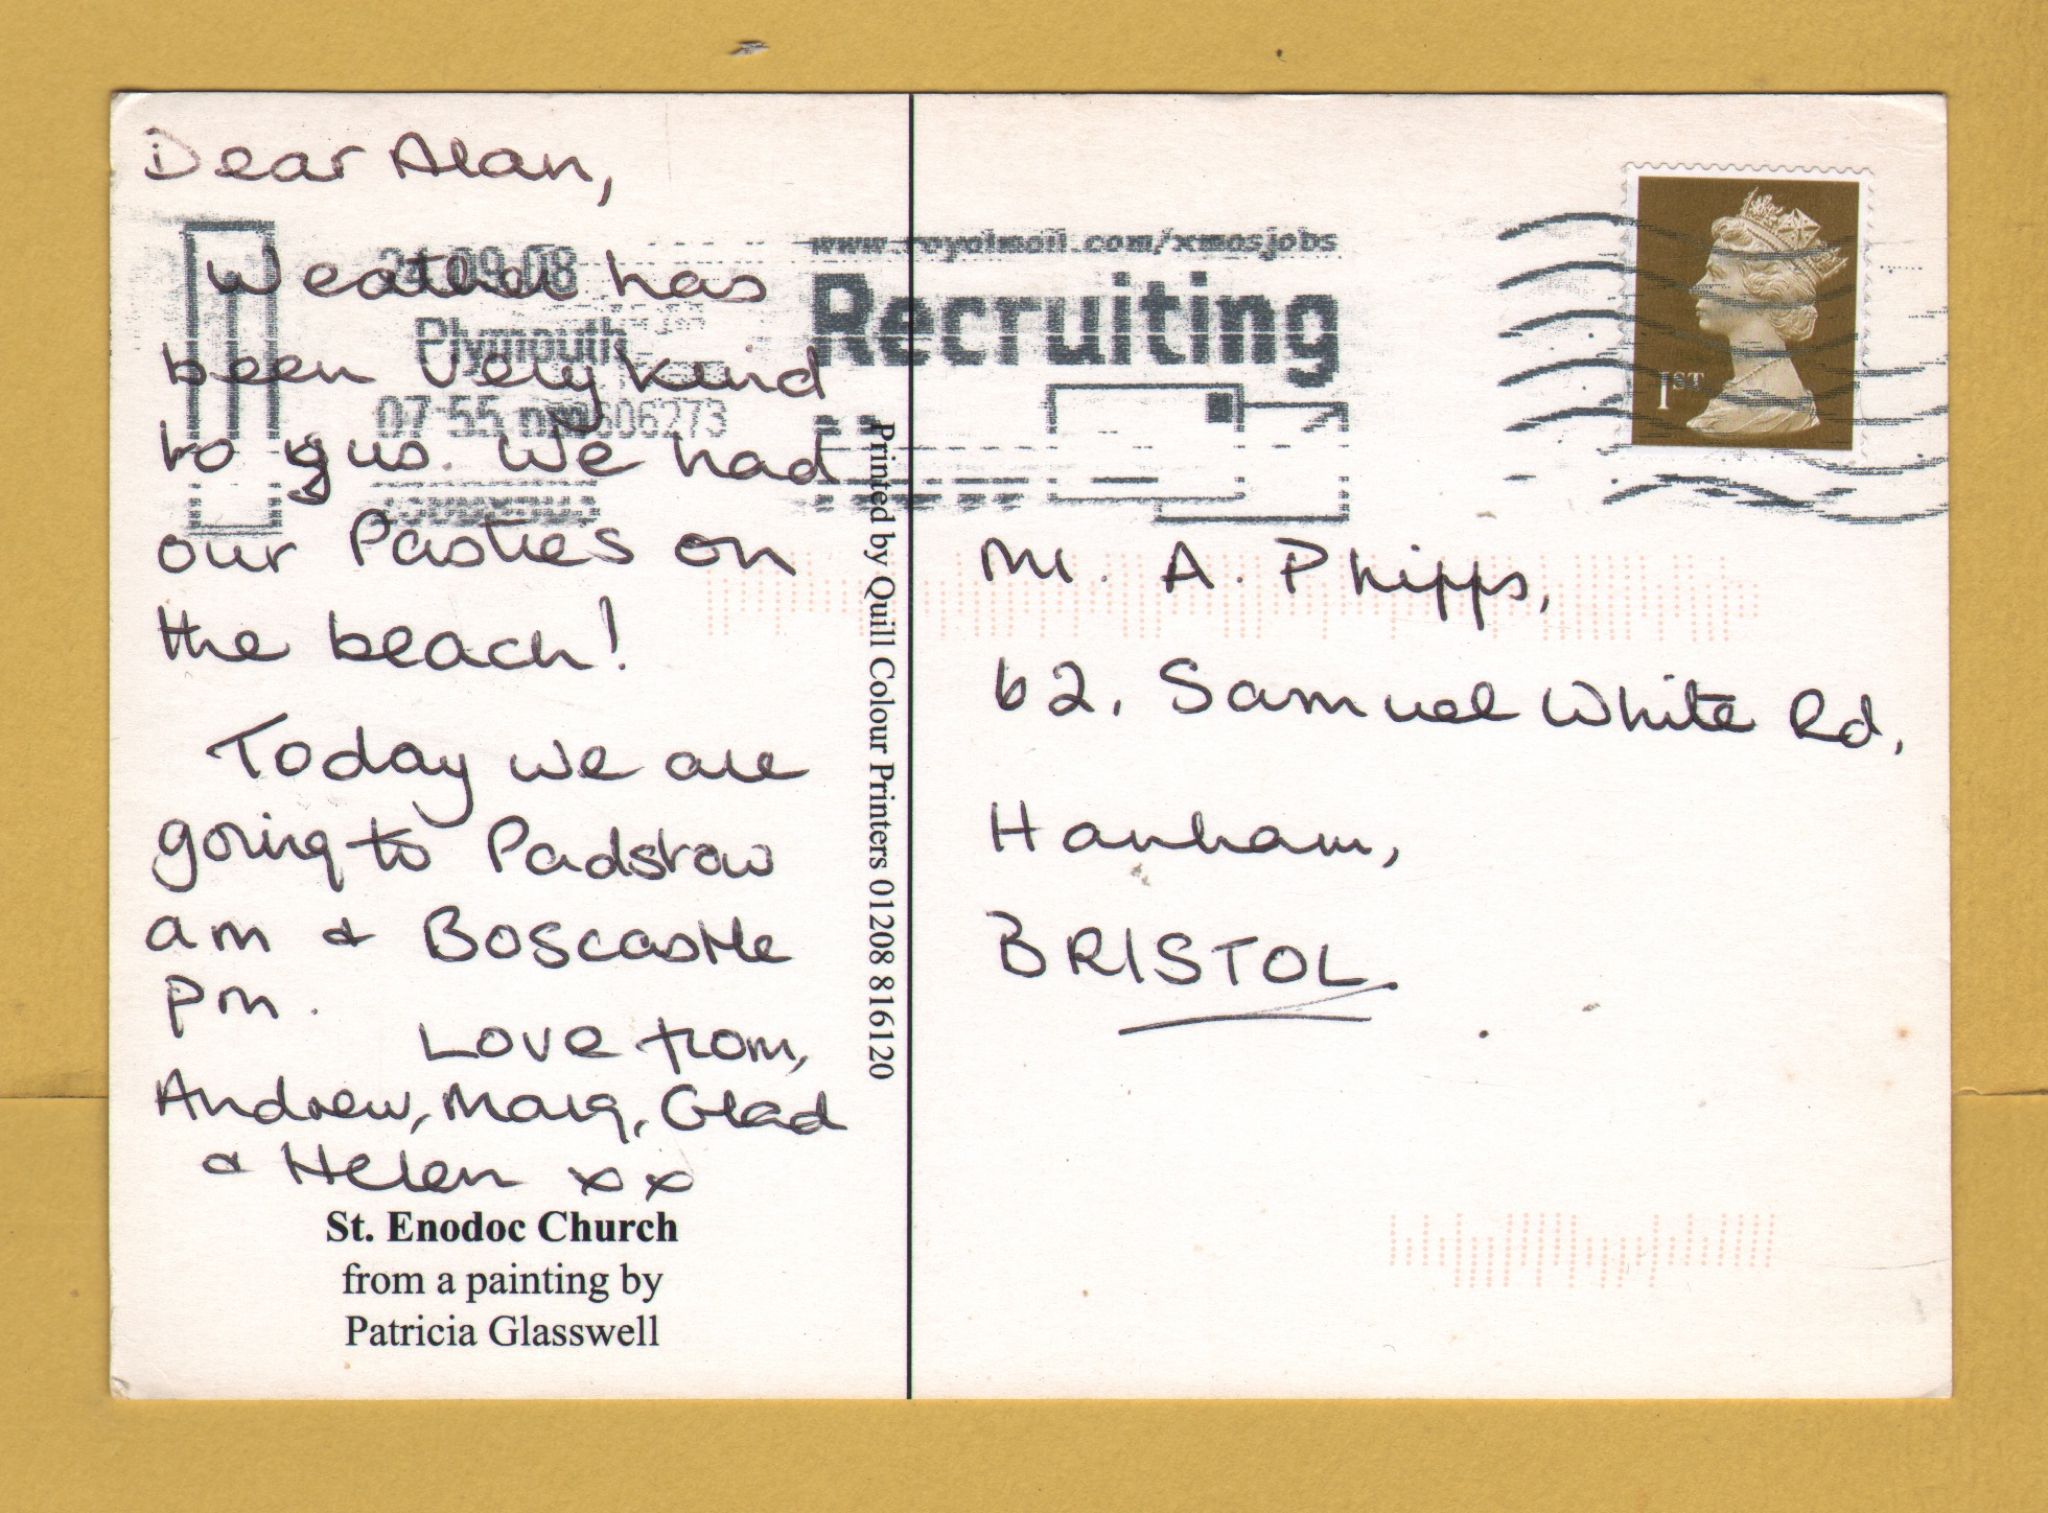 Dear Alan,
Weather has
been very kind
to us. We had
our Pasties on
the beach!
Today we are
going to Padstow
am & Boscastle
pm.
Love from,
Andrew, Marg, Glad
& Helen xx
St. Enodoc Church
from a painting by
Patricia Glasswell
Printed by Quill Colour Printers 01208 816120
09-08
Plymouth
07:55 pm 606273
www.royalmail.com/xmasjobs
Recruiting
1ST
Mr. A. Phipps,
62, Samuel White Rd,
Hanham,
BRISTOL.